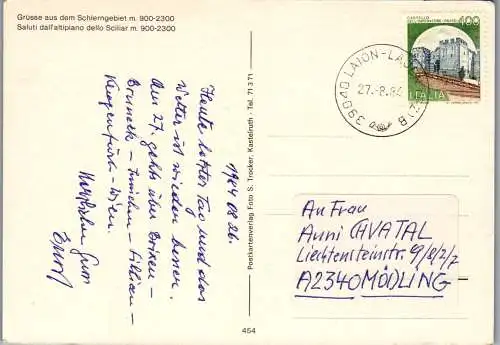 Grüsse aus dem Schlerngebiet m. 900-2300
Saluti dall'altipiano dello Sciliar m. 900-2300
1984 08 26.
Heute letzter Tag und das
Wetter ist wieder besser.
Am 27. gehts über Brixen –
Bruneck – Innichen – Sillian –
Klagenfurt – Wien.
Herzlichen Gruss
Postkartenverlag Foto S. Trocker, Kastelruth - Tel. 71371
454
400
ITALIA
39040 LAION-LA
27.-8.84
An Frau
Anni CHVATAL
Liechtensteinstr. 9/8/2/7
A2340 MÖDLING